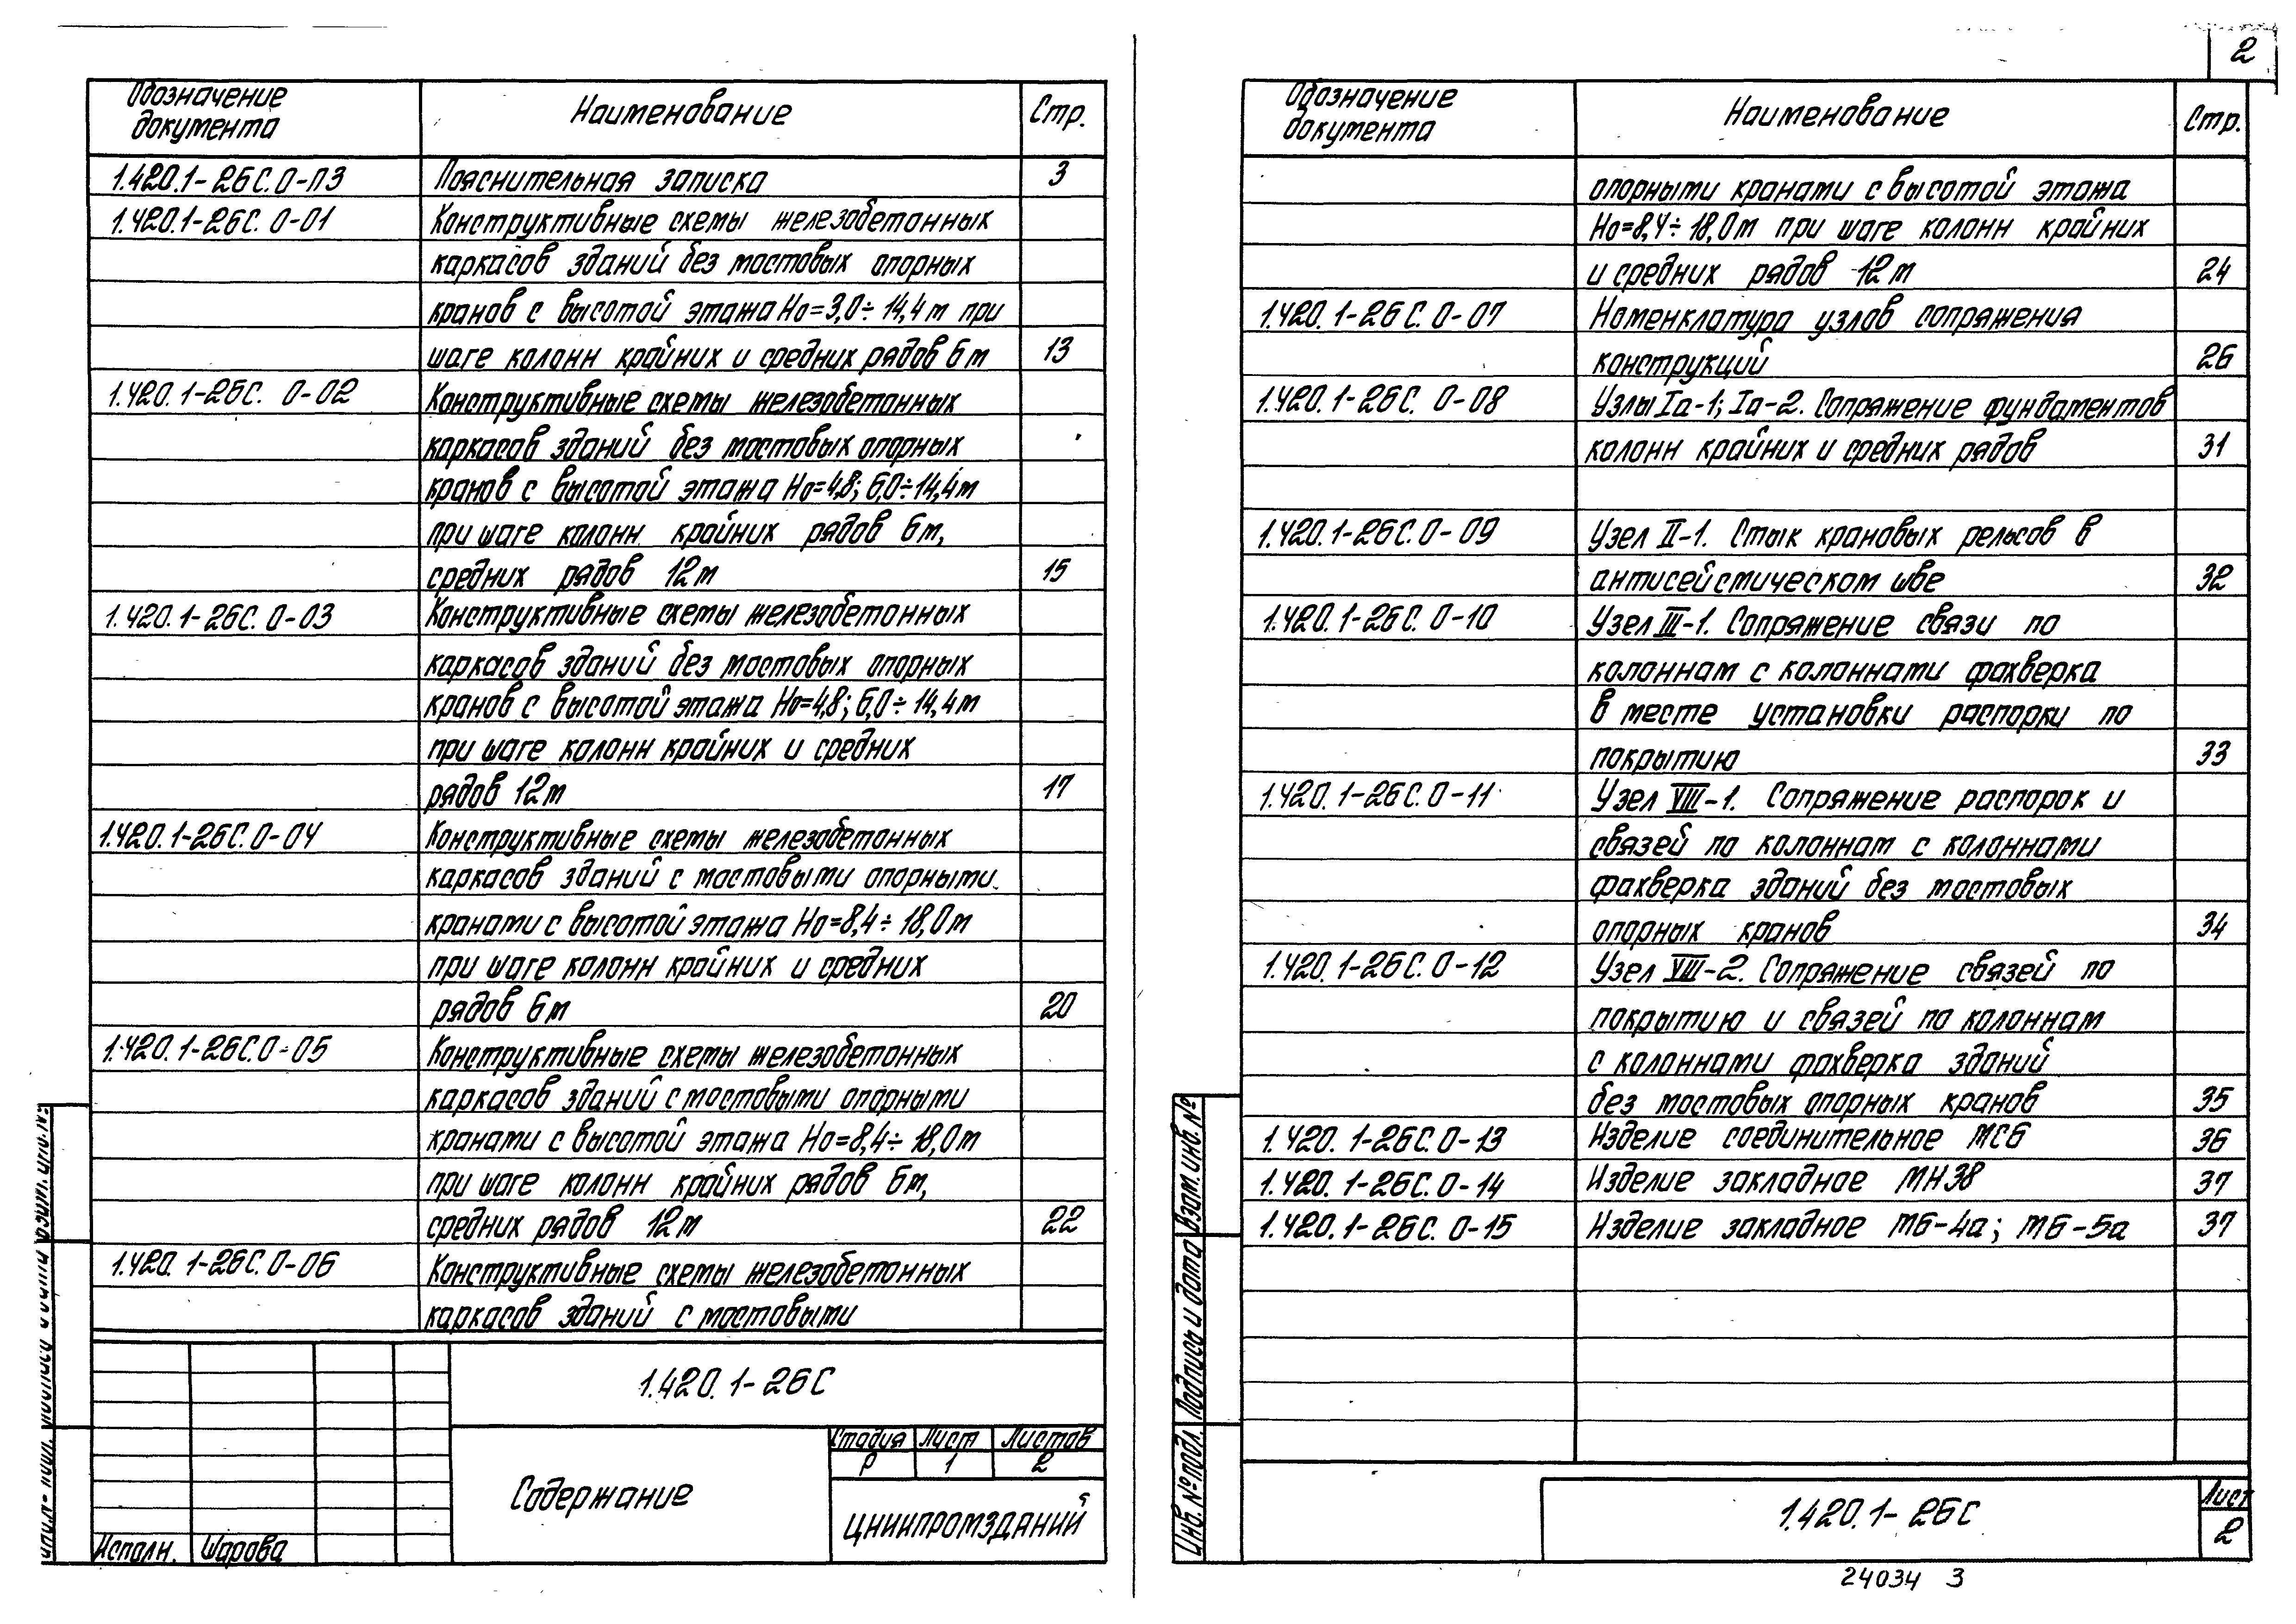 Обозначение документа Наименование Стр.
1.420.1-26С.0-ПЗ Пояснительная записка 3
1.420.1-26С. 0-01 Конструктивные схемы железобетонных
каркасов зданий без мостовых опорных
кранов с высотой этажа Но=3,0÷14,4м при
шаге колонн крайних и средних рядов 6м 13
1.420.1-26С. 0-02 Конструктивные схемы железобетонных
каркасов зданий без мостовых опорных
кранов с высотой этажа Но=4,8; 6,0÷14,4м
при шаге колонн крайних рядов 6м,
средних рядов 12м 15
1.420.1-26С. 0-03 Конструктивные схемы железобетонных
каркасов зданий без мостовых опорных
кранов с высотой этажа Но=4,8; 6,0÷14,4м
при шаге колонн крайних и средних
рядов 12м 17
1.420.1-26С.0-04 Конструктивные схемы железобетонных
каркасов зданий с мостовыми опорными
кранами с высотой этажа Но=8,4÷18,0м
при шаге колонн крайних и средних
рядов 6м 20
1.420.1-26С.0-05 Конструктивные схемы железобетонных
каркасов зданий с мостовыми опорными
кранами с высотой этажа Но=8,4÷18,0м
при шаге колонн крайних рядов 6м,
средних рядов 12м 22
1.420.1-26С.0-06 Конструктивные схемы железобетонных
каркасов зданий с мостовыми
1.420.1-26С
Содержание
Стадия Лист Листов
Р 1 2
ЦНИИПРОМЗДАНИЙ
Исполн. Шарова
2
Обозначение документа Наименование Стр.
опорными кранами с высотой этажа
Но=8,4÷18,0м при шаге колонн крайних
и средних рядов 12м 24
1.420.1-26С.0-07 Номенклатура узлов сопряжения
конструкций 26
1.420.1-26С. 0-08 Узлы Iа-1; Iа-2. Сопряжение фундаментов
колонн крайних и средних рядов 31
1.420.1-26С.0-09 Узел II-1. Стык крановых рельсов в
антисейсмическом шве 32
1.420.1-26С.0-10 Узел III-1. Сопряжение связи по
колоннам с колоннами фахверка
в месте установки распорки по
покрытию 33
1.420.1-26С.0-11 Узел VIII-1. Сопряжение распорок и
связей по колоннам с колоннами
фахверка зданий без мостовых
опорных кранов 34
1.420.1-26С.0-12 Узел VIII-2. Сопряжение связей по
покрытию и связей по колоннам
с колоннами фахверка зданий
без мостовых опорных кранов 35
1.420.1-26С.0-13 Изделие соединительное МС6 36
1.420.1-26С.0-14 Изделие закладное МН38 37
1.420.1-26С.0-15 Изделие закладное М6-4а; М6-5а 37
Инв. № подл. Подпись и дата Взам. инв. №
1.420.1-26С
Лист
2
24034 3